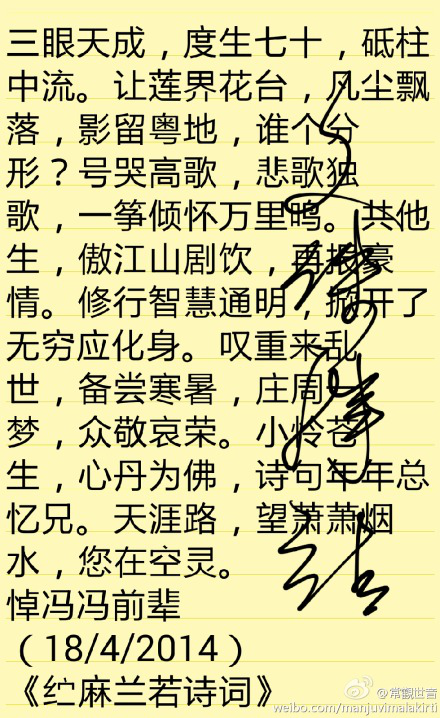 三眼天成，度生七十，砥柱
中流。让莲界花台，凡尘飘
落，影留粤地，谁个分
形？号哭高歌，悲歌独
歌，一筝倾怀万里鸣。共他
生，傲江山剧饮，再报豪
情。修行智慧通明，掀开了
无穷应化身。叹重来乱
世，备尝寒暑，庄周一
梦，众敬哀荣。小怜苍
生，心丹为佛，诗句年年总
忆兄。天涯路，望萧萧烟
水，您在空灵。
悼冯冯前辈
（18/4/2014）
《纻麻兰若诗词》
@常觀世音
weibo.com/manjuvimalakirti